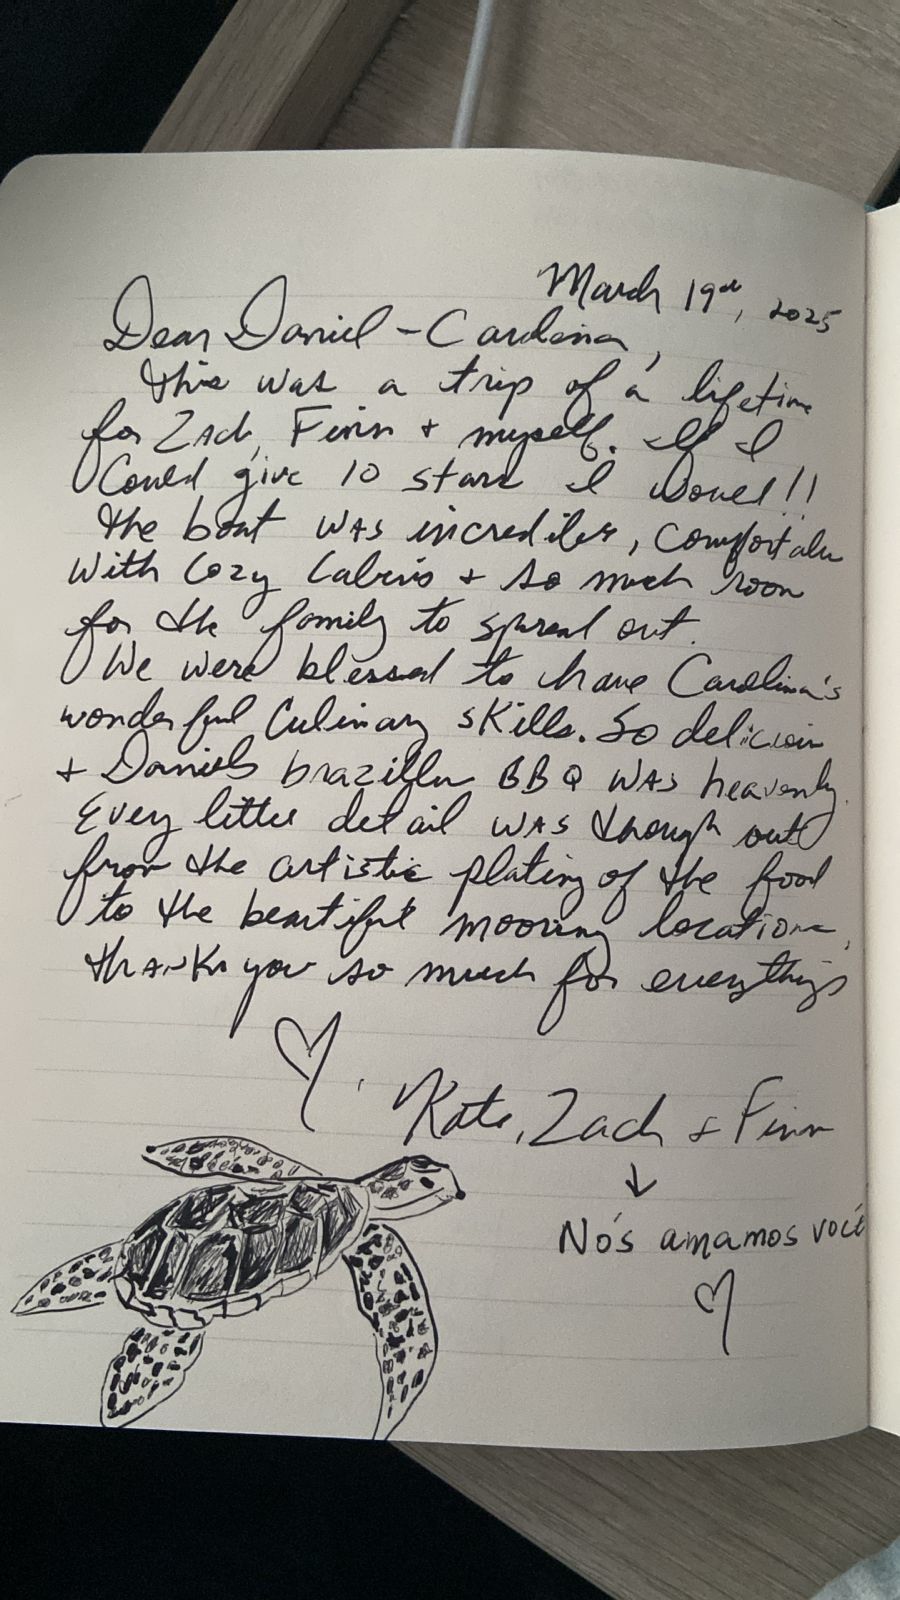 March 19th, 2025
Dear Daniel - Carolina,
This was a trip of a lifetime
for Zach, Finn + myself. If I
Could give 10 stars I would!!
The boat was incredible, comfortable
With Cozy Cabins + so much room
for the family to spread out.
We were blessed to have Carolina's
wonderful Culinary skills. So delicious
+ Daniel's brazillian BBQ was heavenly.
Every little detail was though out
from the artistic plating of the food
to the beautiful mooring locations.
Thank you so much for everything
♡, Kate, Zach & Finn
↓
Nós amamos você
♡